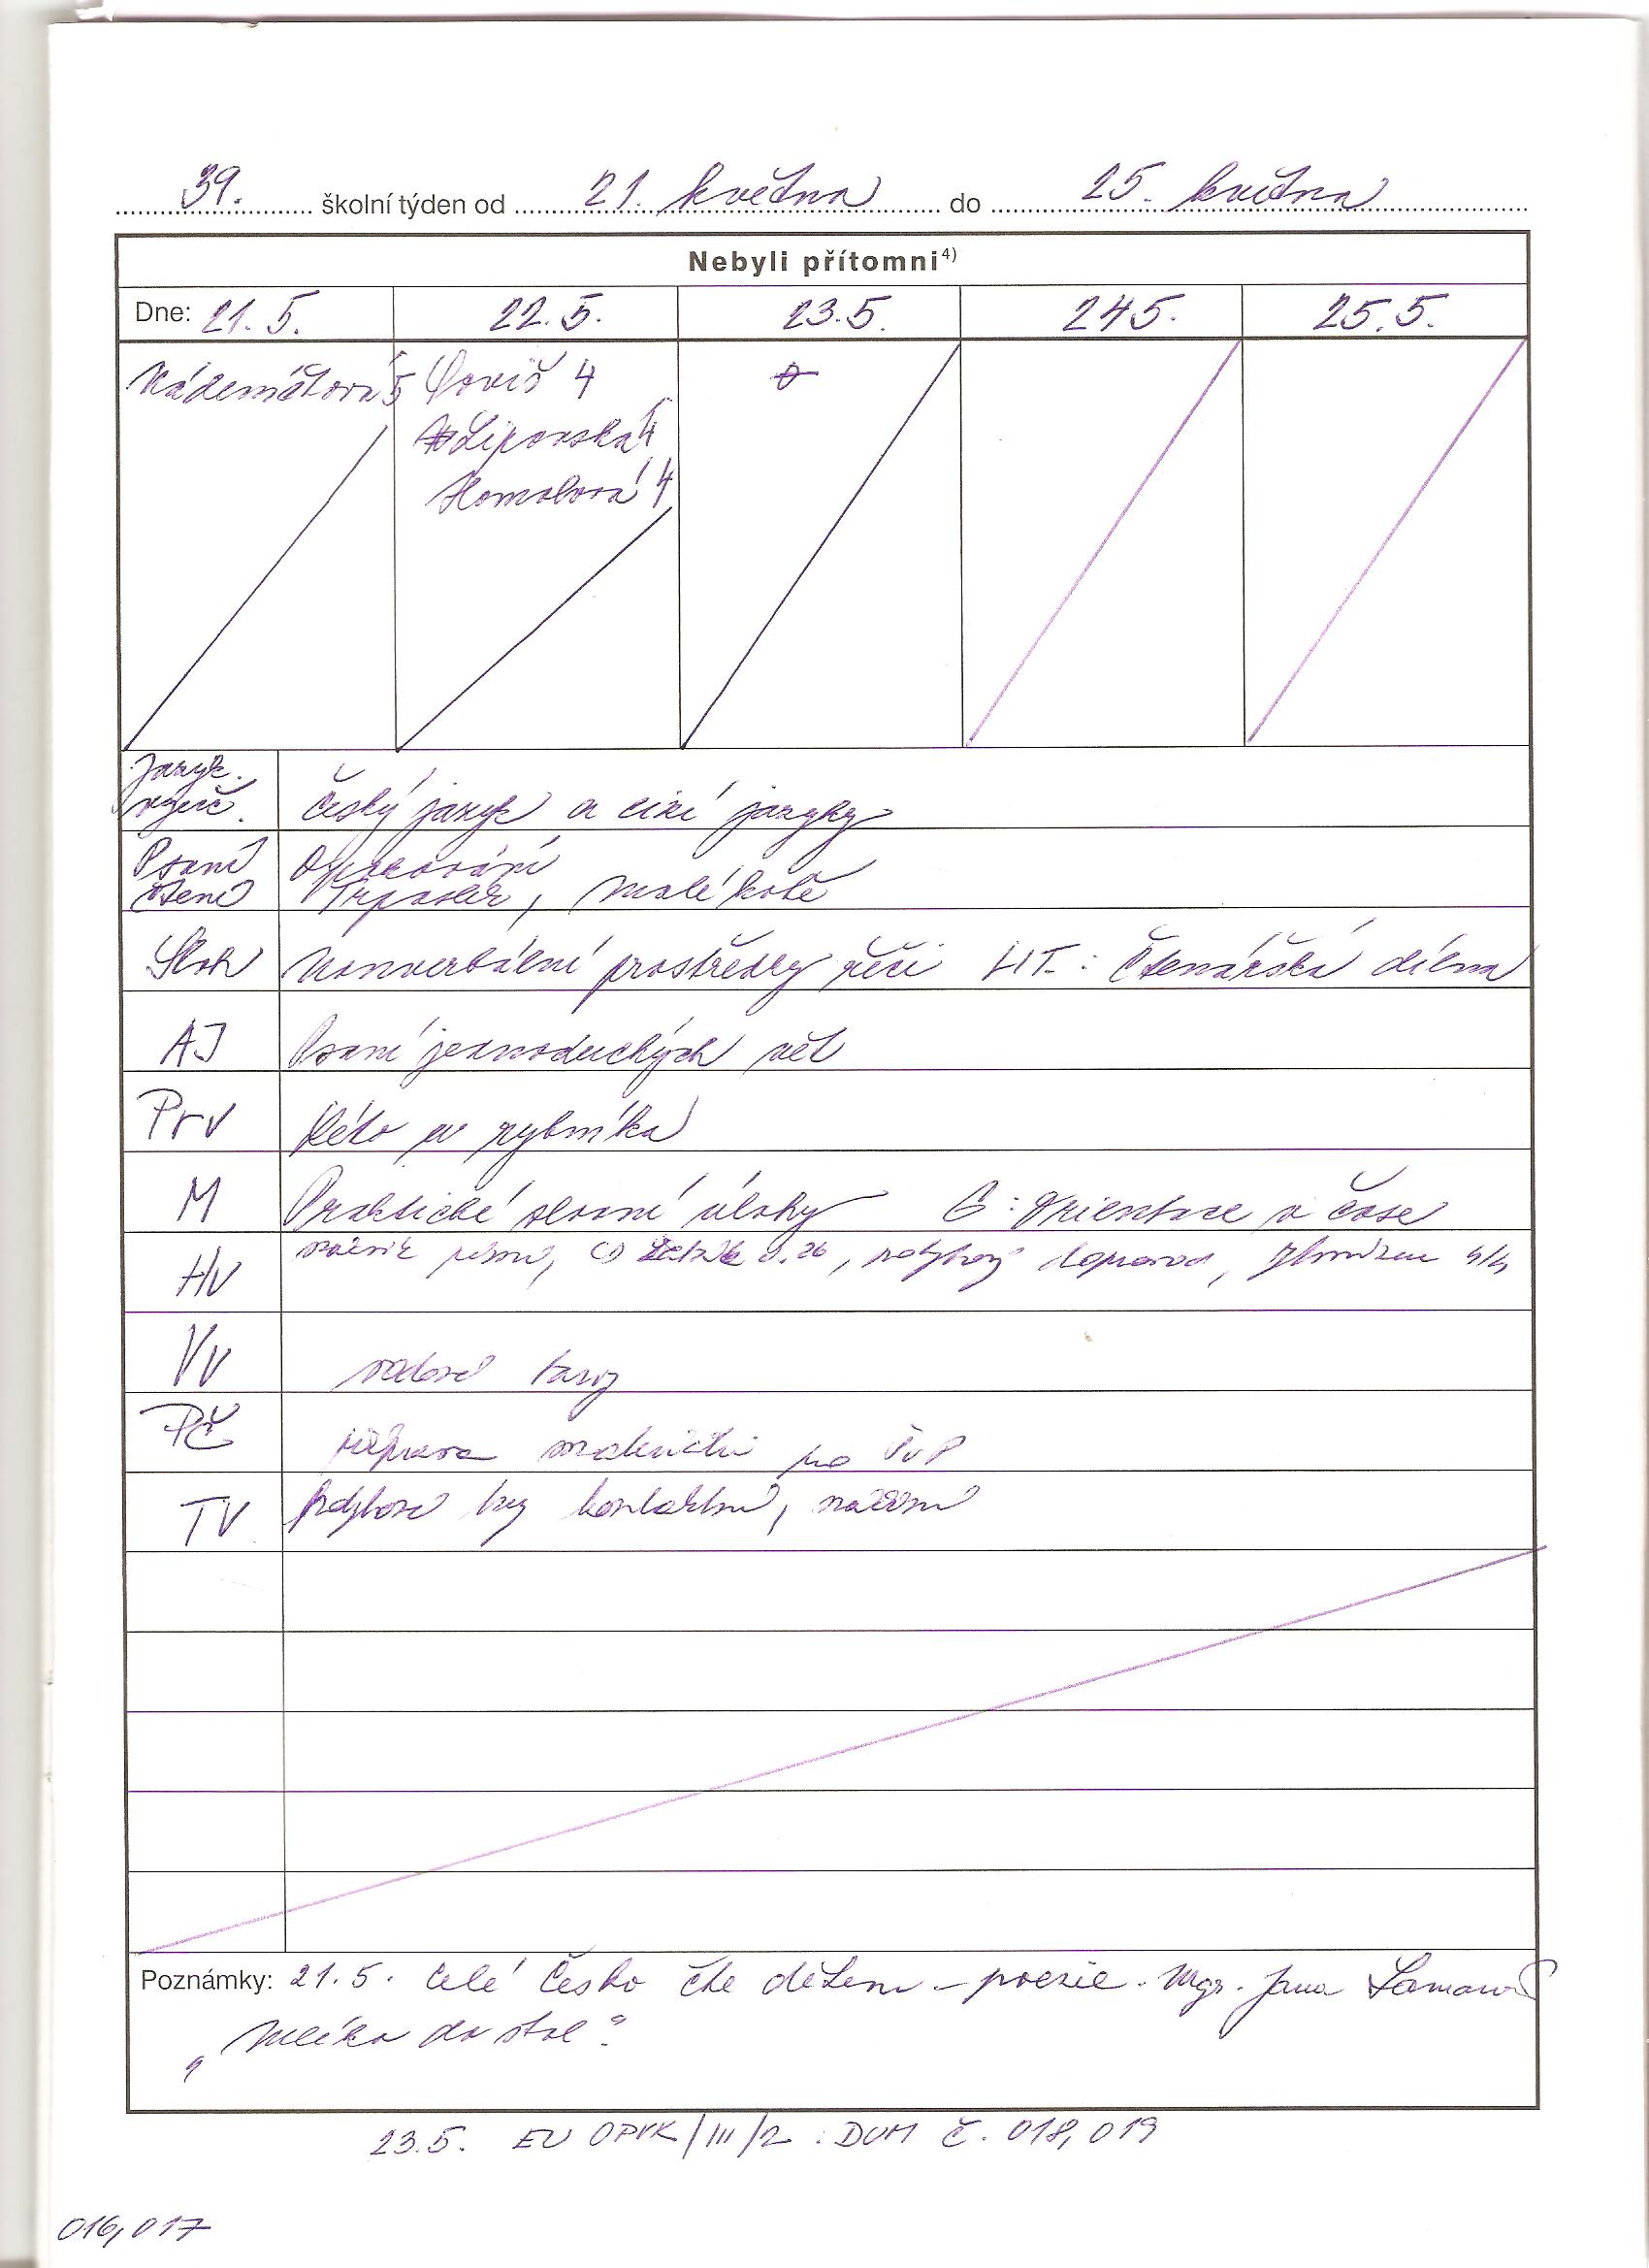 39. školní týden od 21. května do 25. května
Nebyli přítomni 4)
Dne: 21. 5. 22. 5. 23. 5. 24 5. 25. 5.
5 4 0
Liporská 4
Homolová 4
Jazyk.
Český jazyk a cizí jazyky
Psaní Opakování
čtení Trpaslík, malé kotě
Sloh Nonverbální prostředky řeči LIT.: Čtenářská dílna
AJ Psaní jednoduchých vět
Prv Léto u rybníka
M Praktické slovní úlohy G: Orientace v čase
Hv nácvik písní, CD č. 26, pohybový doprovod, 4/4
Vv vodové barvy
PČ příprava na PvP
TV Pohybové hry kontaktní, náčiní
Poznámky: 21. 5. Celé Česko čte dětem – poezie. Mgr. Jana
„Mléko do škol“.
23.5. EU OPVK/III/2 : DUM č. 018, 019
016, 017